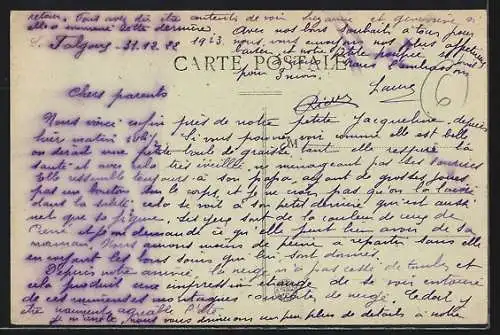 retour. Vous avez dû être contents de voir Suzanne et Geneviève si
elle a
dernière. Avec nos bons souhaits à tous pour
Falgoux 31.12.22 1923, nous vous envoyons nos plus affectueux
baisers et notre petite poupée
CARTE POSTALE
pour 3 mois.
Chers parents
Nous voici enfin près de notre petite Jacqueline, depuis
hier matin. Si vous pouviez voir comme elle est belle
on dirait une petite boule de graisse, tant elle respire la
santé et avec cela très éveillée, ne ménageant pas les sourires
Elle ressemble toujours à son papa, ayant de grosses joues,
pas un bouton sur le corps, et je ne crois pas qu'on la laisse
dans la saleté, cela se voit à son petit derrière qui est aussi
net que sa figure. Ses yeux sont de la couleur de ceux de
Pierre et je me demande ce qu'elle peut bien avoir de sa
maman. Nous aurons moins de peine à repartir sans elle
en voyant les bons soins qui lui sont donnés.
Depuis notre arrivée, la neige n'a pas cessé de tomber et
cela produit une impression étrange de se voir entouré
de ces immenses montagnes couvertes de neige. Ce doit
être vraiment agréable l'été
Je m'arrête, nous vous donnerons un peu plus de détails à notre